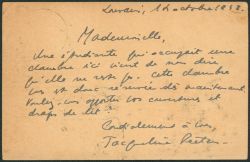 Louvain, 1 octobre 1952.
Mademoiselle,
Une étudiante qui occupait une
chambre ici vient de me dire
qu'elle ne est pas. cette chambre
est donc réservée dès maintenant.
Voulez-vous apporter vos couvertures et
draps de lit?
Cordialement à vous,
Jacqueline